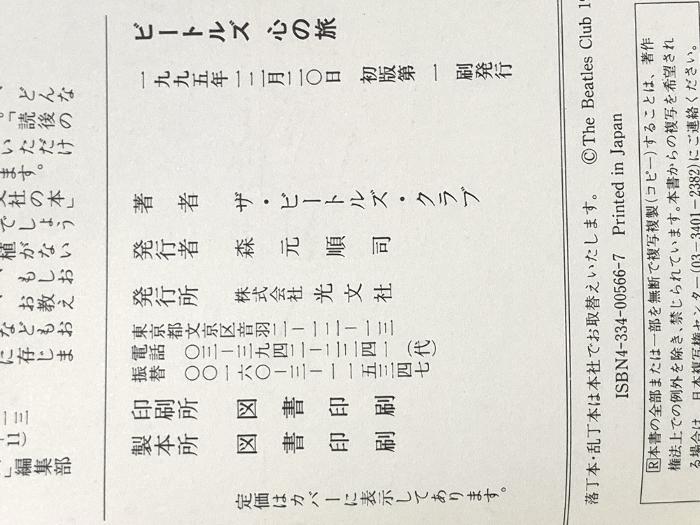 、どんな
。「読後の
いただけ
ます。
文社の本」
でしょう
植がない
、もしお
お教え
などもお
に存じま
一三
11）
」編集部
ビートルズ 心の旅
一九九五年一二月二〇日　初版第一刷発行
著者　ザ・ビートルズ・クラブ
発行者　森元順司
発行所　株式会社 光文社
東京都文京区音羽二―一二―一三
電話　〇三―三九四二―二二四一（代）
振替　〇〇一六〇―三―一一五三四七
印刷所　図書印刷
製本所　図書印刷
定価はカバーに表示してあります。
落丁本・乱丁本は本社でお取替えいたします。　©The Beatles Club 19
ISBN4-334-00566-7　Printed in Japan
R本書の全部または一部を無断で複写複製（コピー）することは、著作
権法上での例外を除き、禁じられています。本書からの複写を希望され
る場合は、日本複写権センター（03-3401-2382）にご連絡ください。